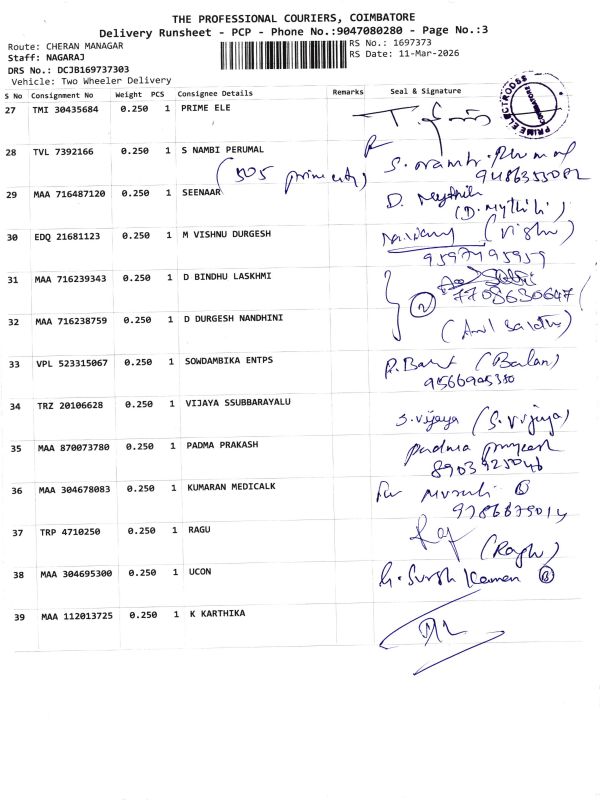 THE PROFESSIONAL COURIERS, COIMBATORE
Delivery Runsheet - PCP - Phone No.:9047080280 - Page No.:3
Route: CHERAN MANAGAR RS No.: 1697373
Staff: NAGARAJ RS Date: 11-Mar-2026
DRS No.: DCJB169737303
Vehicle: Two Wheeler Delivery
S No Consignment No Weight PCS Consignee Details Remarks Seal & Signature
27 TMI 30435684 0.250 1 PRIME ELE
PRIME ELECTRODES COIMBATORE
28 TVL 7392166 0.250 1 S NAMBI PERUMAL
(505 prime city)
29 MAA 716487120 0.250 1 SEENAAR D. Mythili
(D. Mythili)
30 EDQ 21681123 0.250 1 M VISHNU DURGESH (Vishnu)
9597195959
31 MAA 716239343 0.250 1 D BINDHU LASKHMI
2 7708630647
32 MAA 716238759 0.250 1 D DURGESH NANDHINI
33 VPL 523315067 0.250 1 SOWDAMBIKA ENTPS (Balan)
9566905380
34 TRZ 20106628 0.250 1 VIJAYA SSUBBARAYALU S. Vijaya (S. Vijaya)
35 MAA 870073780 0.250 1 PADMA PRAKASH padma
8903925046
36 MAA 304678083 0.250 1 KUMARAN MEDICALK for
9786679014
37 TRP 4710250 0.250 1 RAGU
(Raghu)
38 MAA 304695300 0.250 1 UCON
39 MAA 112013725 0.250 1 K KARTHIKA